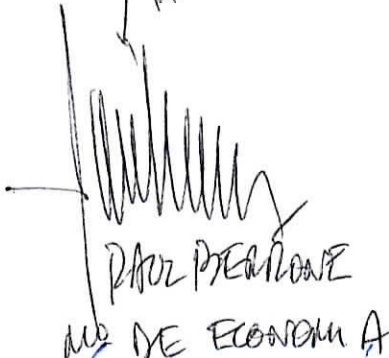 RAUL BERRONE
Mº DE ECONOMIA